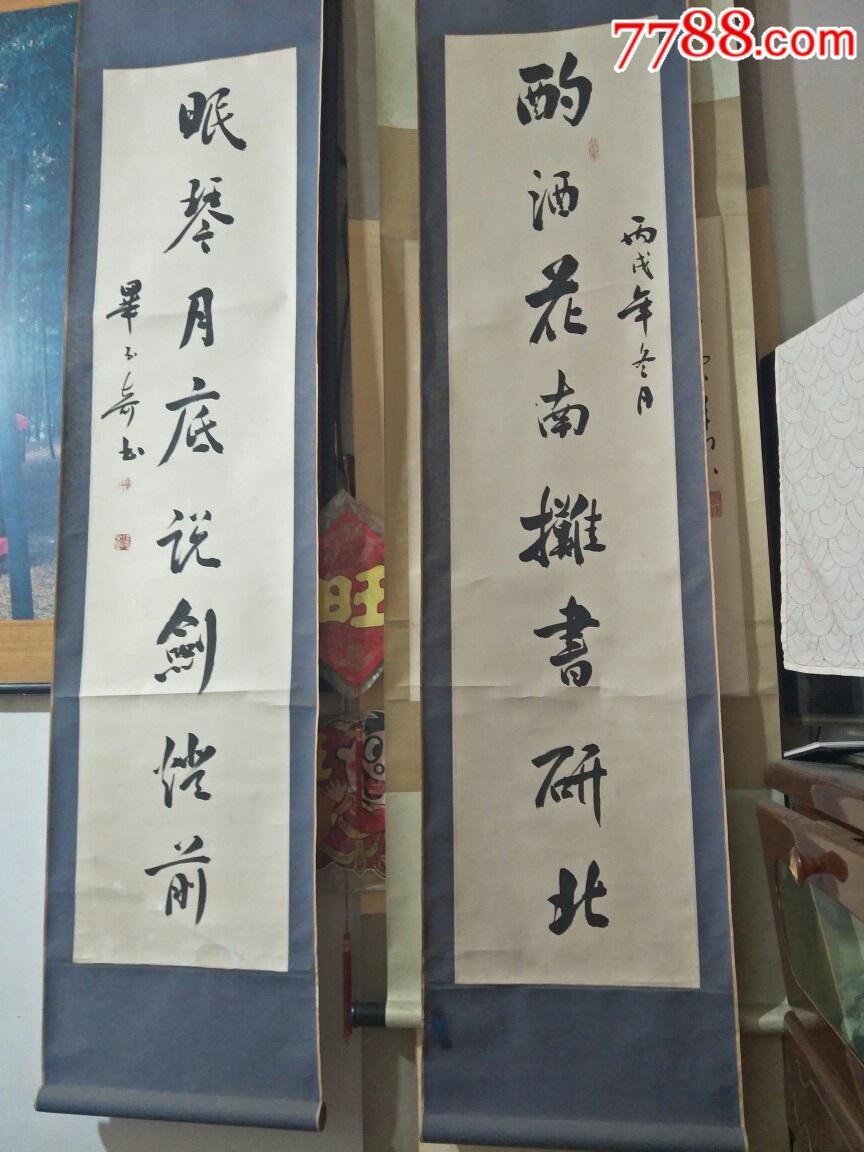 7788.com
酌酒花南攤書研北
丙戌年冬月
眠琴月底说劍燈前
畢子奇书
旺